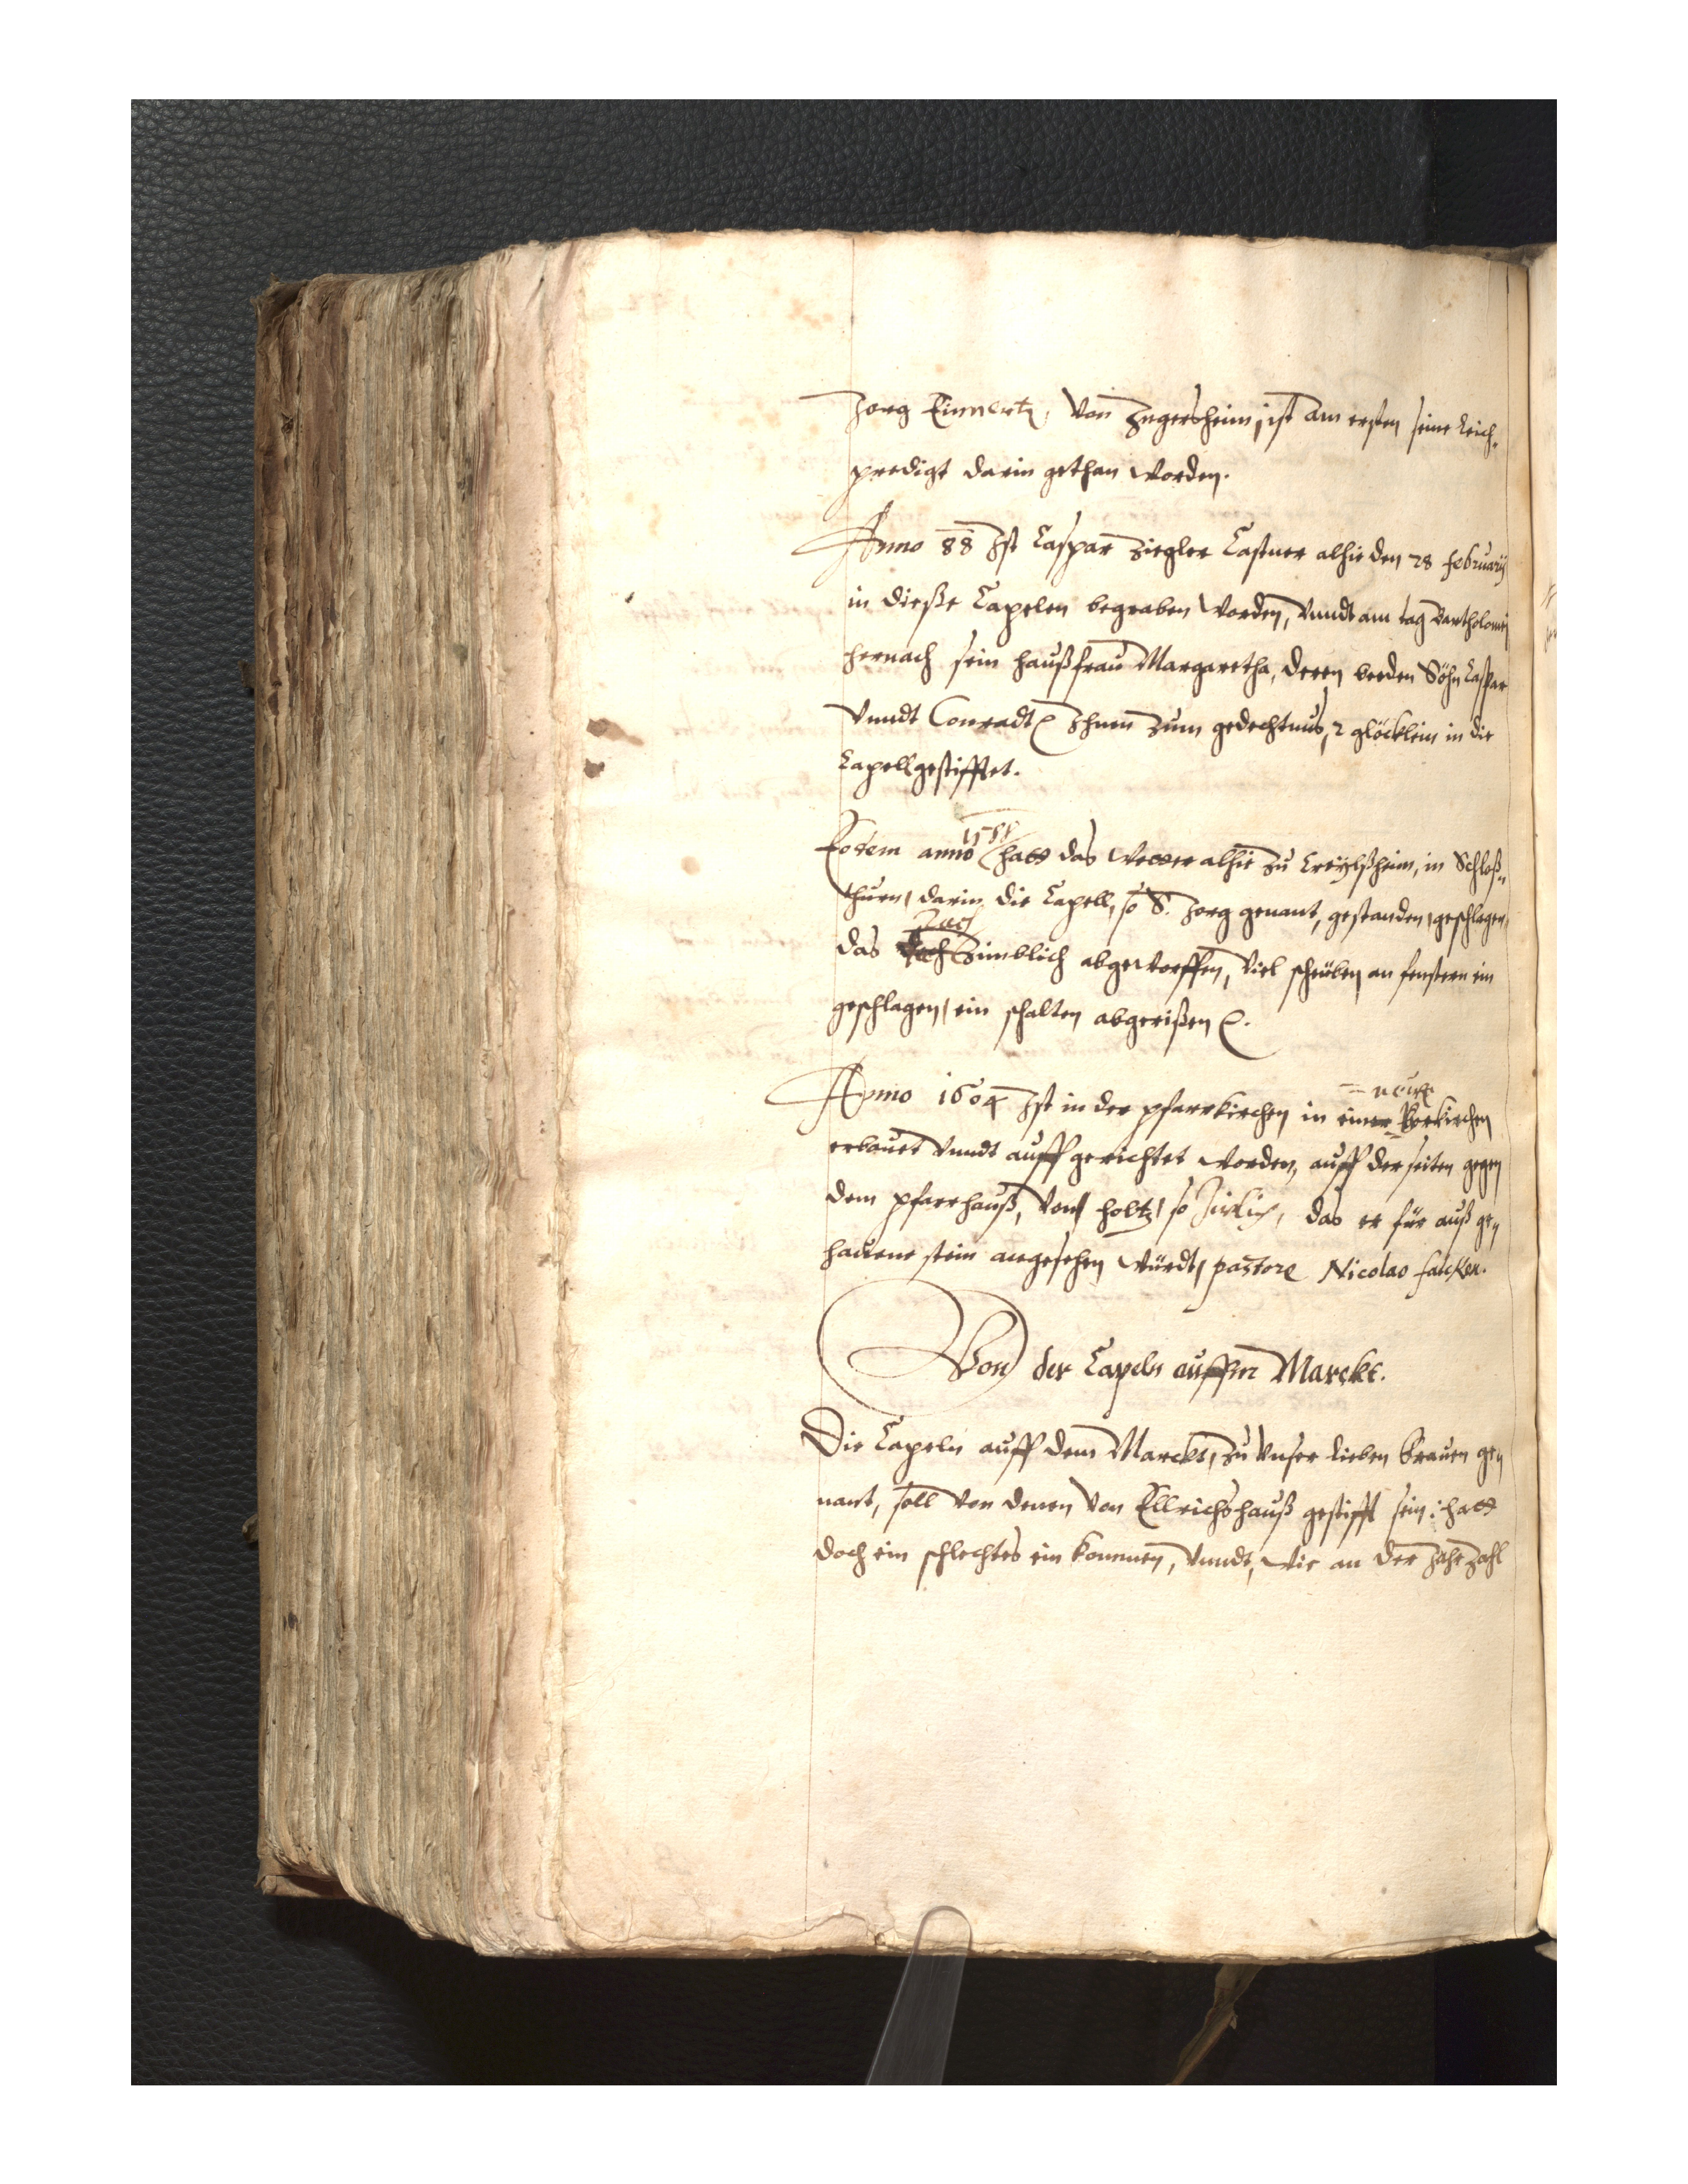 Jorg Emmertz, von Ingersheim, ist am ersten seine Leich-
predigt darin gethan worden.
Anno 88 Ist Caspar Ziegler Castner alhie den 28 february
in dieße Capelen begraben worden, vnndt am tag Bartholomej
hernach sein haußfrau Margaretha, deren beeden Söhn Caspar
vnndt Conradt Ihnen zum gedechtnus, 2 glöcklein in die
Capell gestifftet.
1588
Eodem anno hatt das Wetter alhie zu Creylßheim, in Schloß-
thurn, darin die Capell, so S. Jorg genant, gestanden, geschlagen,
Dach
das zimblich abgeworffen, viel scheüben an fenstern ein
geschlagen, ein schalten abgerißen
neüe
Anno 1604 Ist in der pfarrkirchen in einer Borkirchen
erbauet vnndt auffgerichtet worden, auff der seiten gegen
dem pfarrhauß, von holtz, so zirlich, das er für auß ge-
hauene stein angesehen würdt, pastore Nicolao
Von der Capeln auffm Marckt.
Die Capeln auff dem Marckt, zu vnser lieben frauen ge-
nant, soll von denen von Ellrichshauß gestifft sein: hatt
doch ein schlechtes ein kommen, vnndt, wie an der Jahrzahl